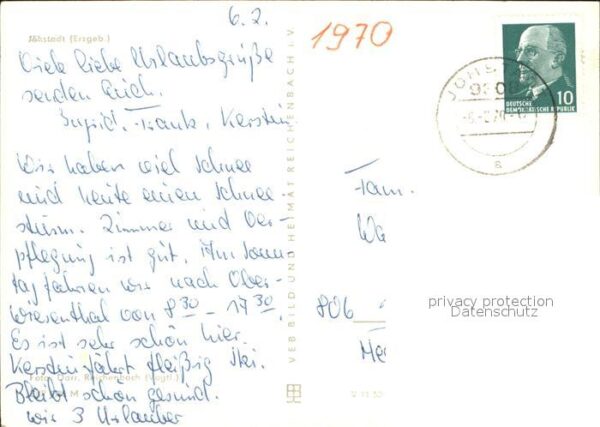 6.2.
Jöhstadt (Erzgeb.)
1970
Viele liebe Urlaubsgrüße
senden Euch.
Ingrid, Frank, Kerstin
Wir haben viel Schnee
und heute einen Schnee-
sturm. Zimmer und Ver-
pflegung ist gut. Am Sonn
tag fahren wir nach Ober-
wiesenthal von 8 30 - 17 30.
Es ist sehr schön hier.
Kerstin fährt fleißig Ski.
Bleibt schön gesund.
wir 3 Urlauber
Foto: Darr, Reichenbach (Vogtl.)
M
VEB BILD UND HEIMAT REICHENBACH i. V.
V 11 50
DEUTSCHE
DEMOKRATISCHE REPUBLIK
10
a
Fam.
806
privacy protection
Datenschutz